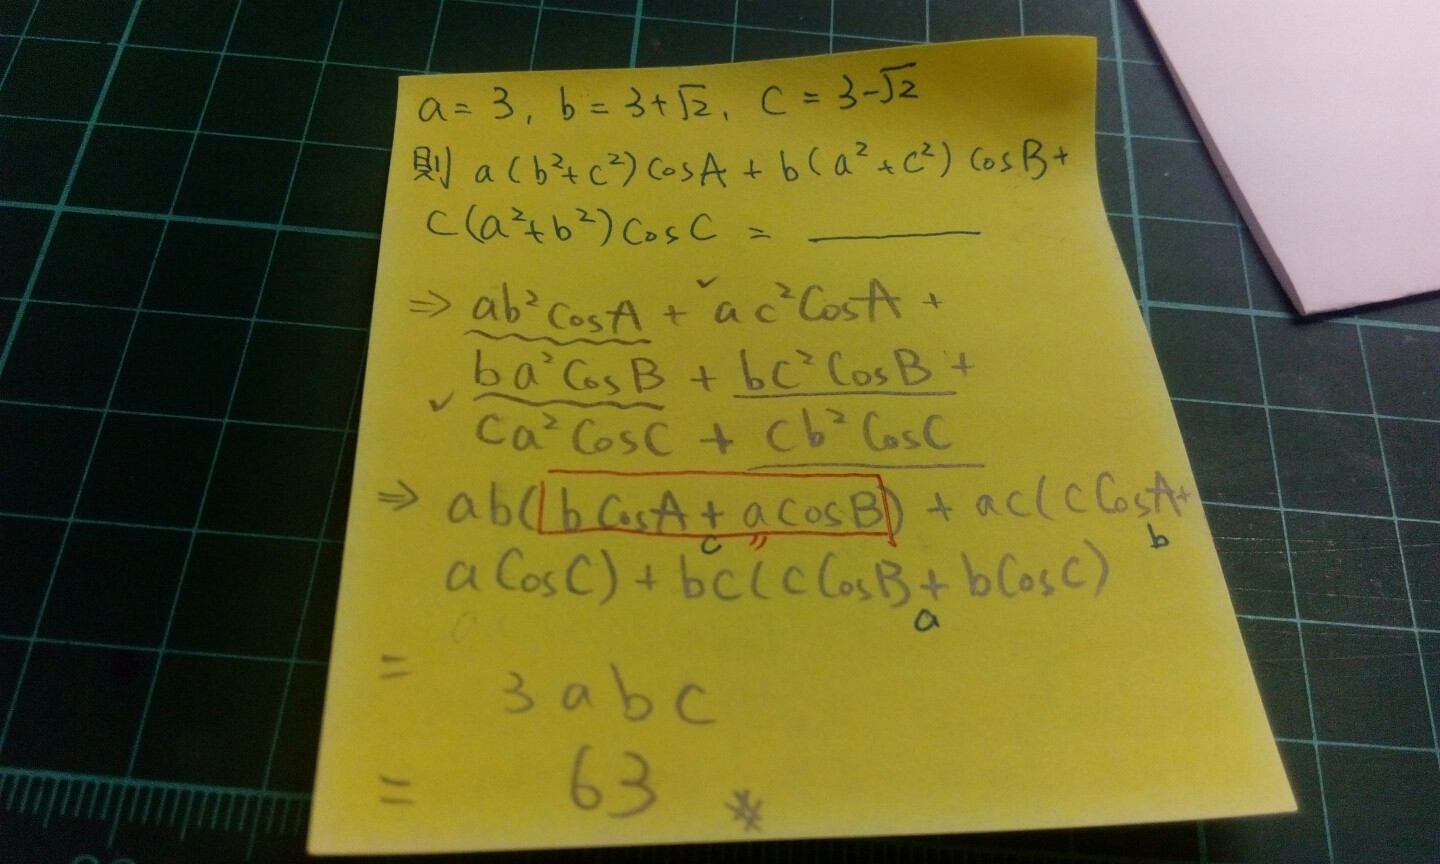 a = 3, b = 3+√2, c = 3-√2
則 a(b²+c²)cosA + b(a²+c²) cosB+
c(a²+b²)cosC = ________
⇒ ab²cosA + ✓ac²CosA +
ba²CosB + bc²CosB +
✓ ca²CosC + cb²CosC
⇒ ab(bCosA + acosB) + ac(cCosA+
c " b
aCosC) + bc(cCosB + bCosC)
a
= 3abc
= 63 ※